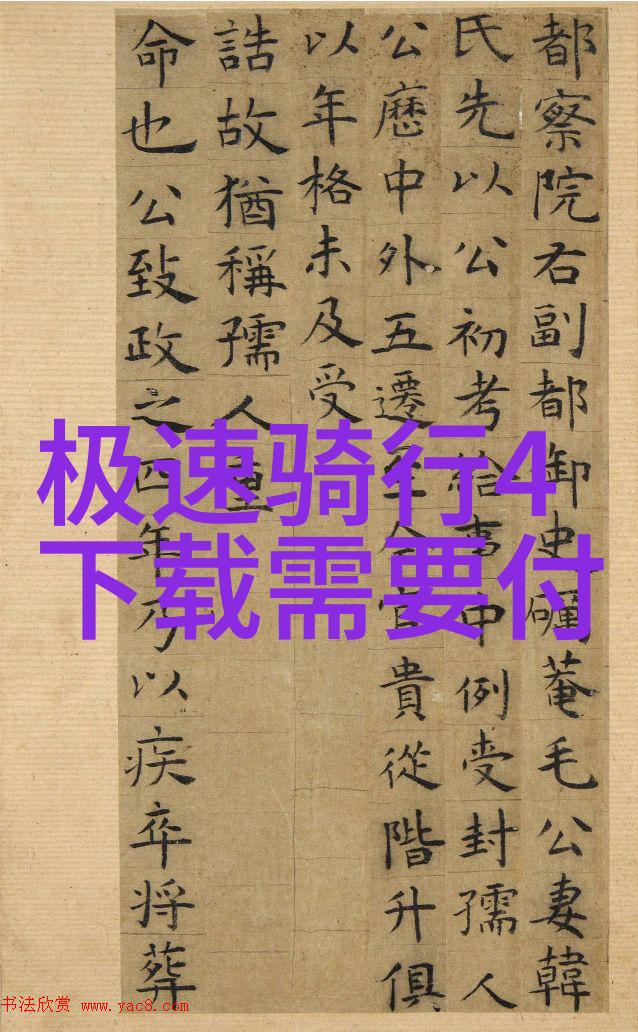 都察院右副都御史礪菴毛公妻韓
氏先以公初考給事中例受封孺人
公歷中外五遷至今官貴從階升俱
以年格未及受
誥故猶稱孺人重
命也公致政之四年乃以疾卒將葬
极速骑行4
下载需要付
书法欣赏 www.yac8.com